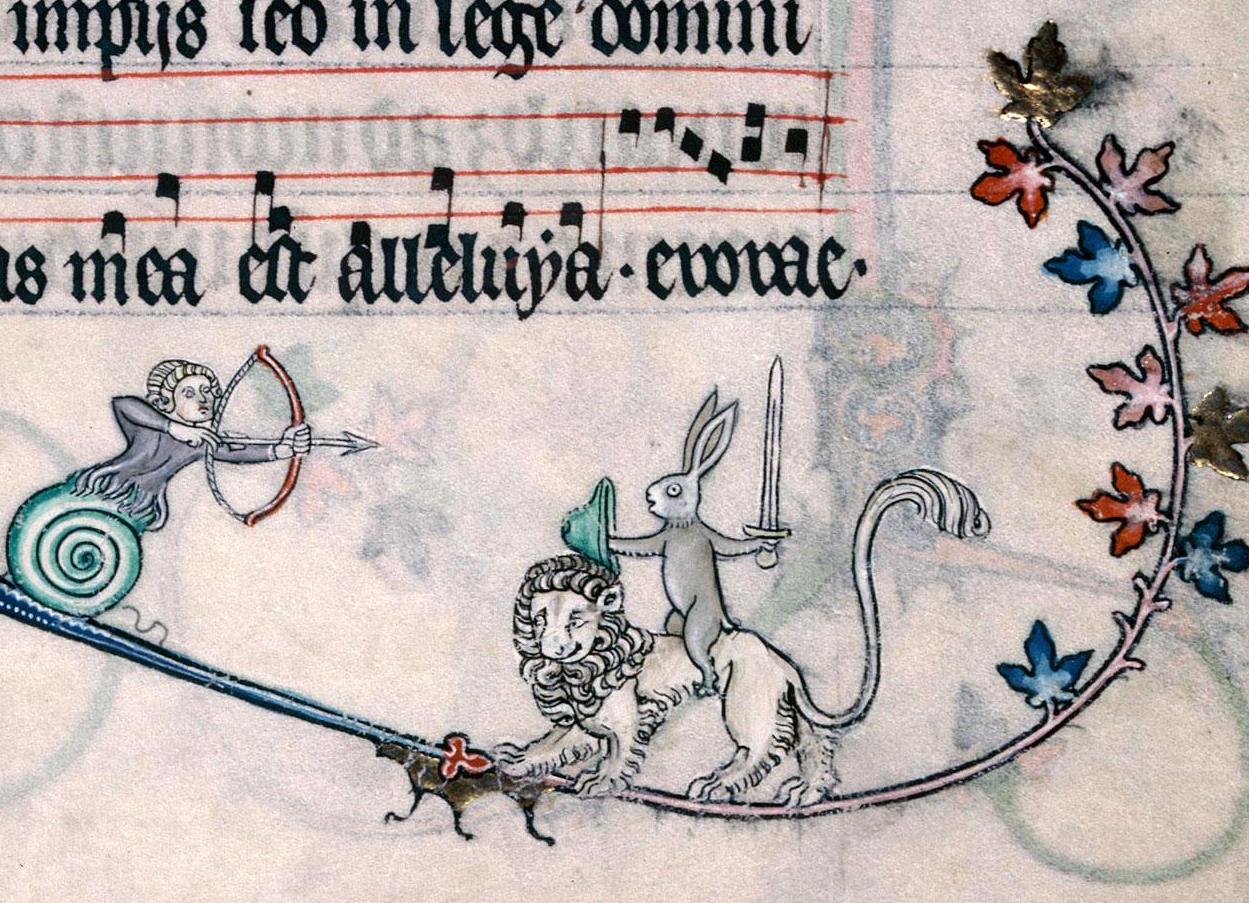 impijs sed in lege domini
as mea est alleluya · evovae ·